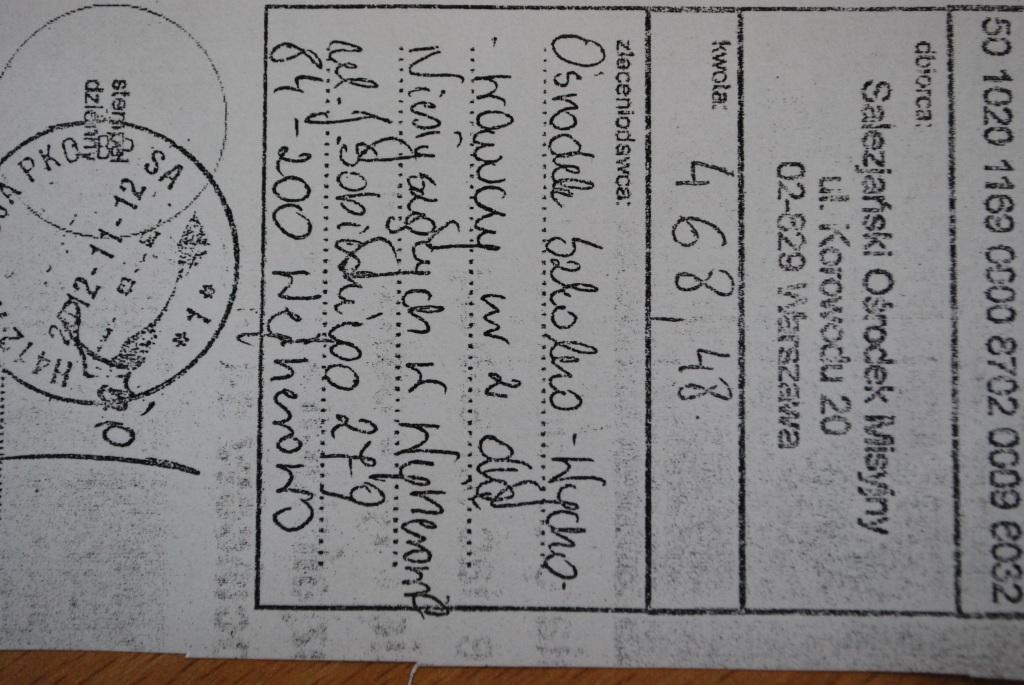 50 1020 1169 0000 8702 0009 6032
dbiorca:
Salezjański Ośrodek Misyjny
ul. Korowodu 20
02-829 Warszawa
kwota:
468,48
zleceniodawca:
Ośrodek Szkolno-Wycho-
wawczy nr 2 dla
Niesłyszących w Wejherowie
ul. J. Sobieskiego 279
84-200 Wejherowo
stempel
dzienny
PKO SA
2012-11-12
* 1 *